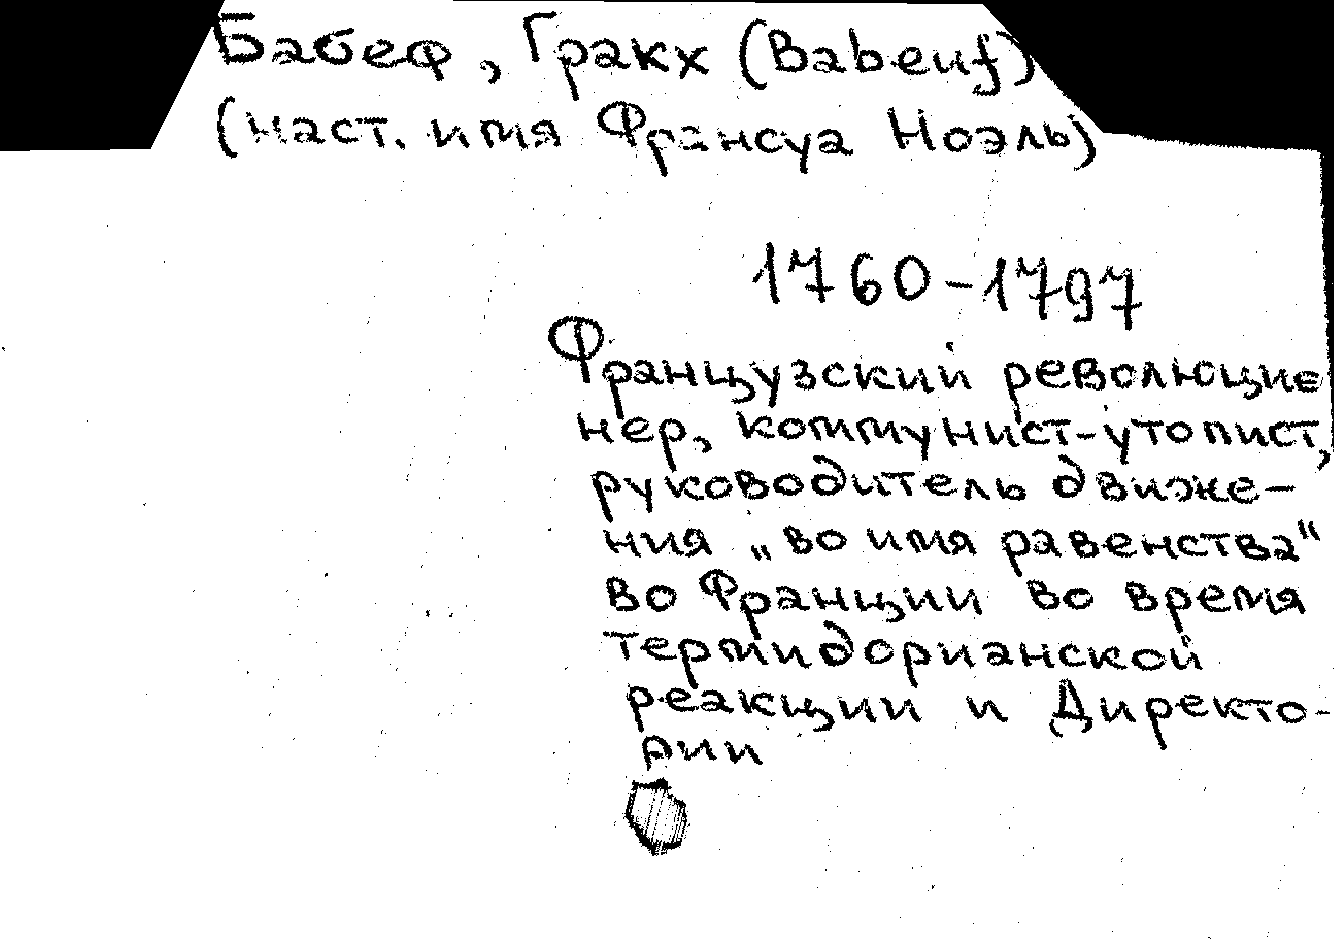 Бабеф, Гракх (Babeuf)
(наст. имя Франсуа Ноэль)
1760-1797
Французский революцие
нер, коммунист-утопист,
руководитель движе-
ния „во имя равенства“
во Франции во время
термидорианской
реакции и Директо-
рии